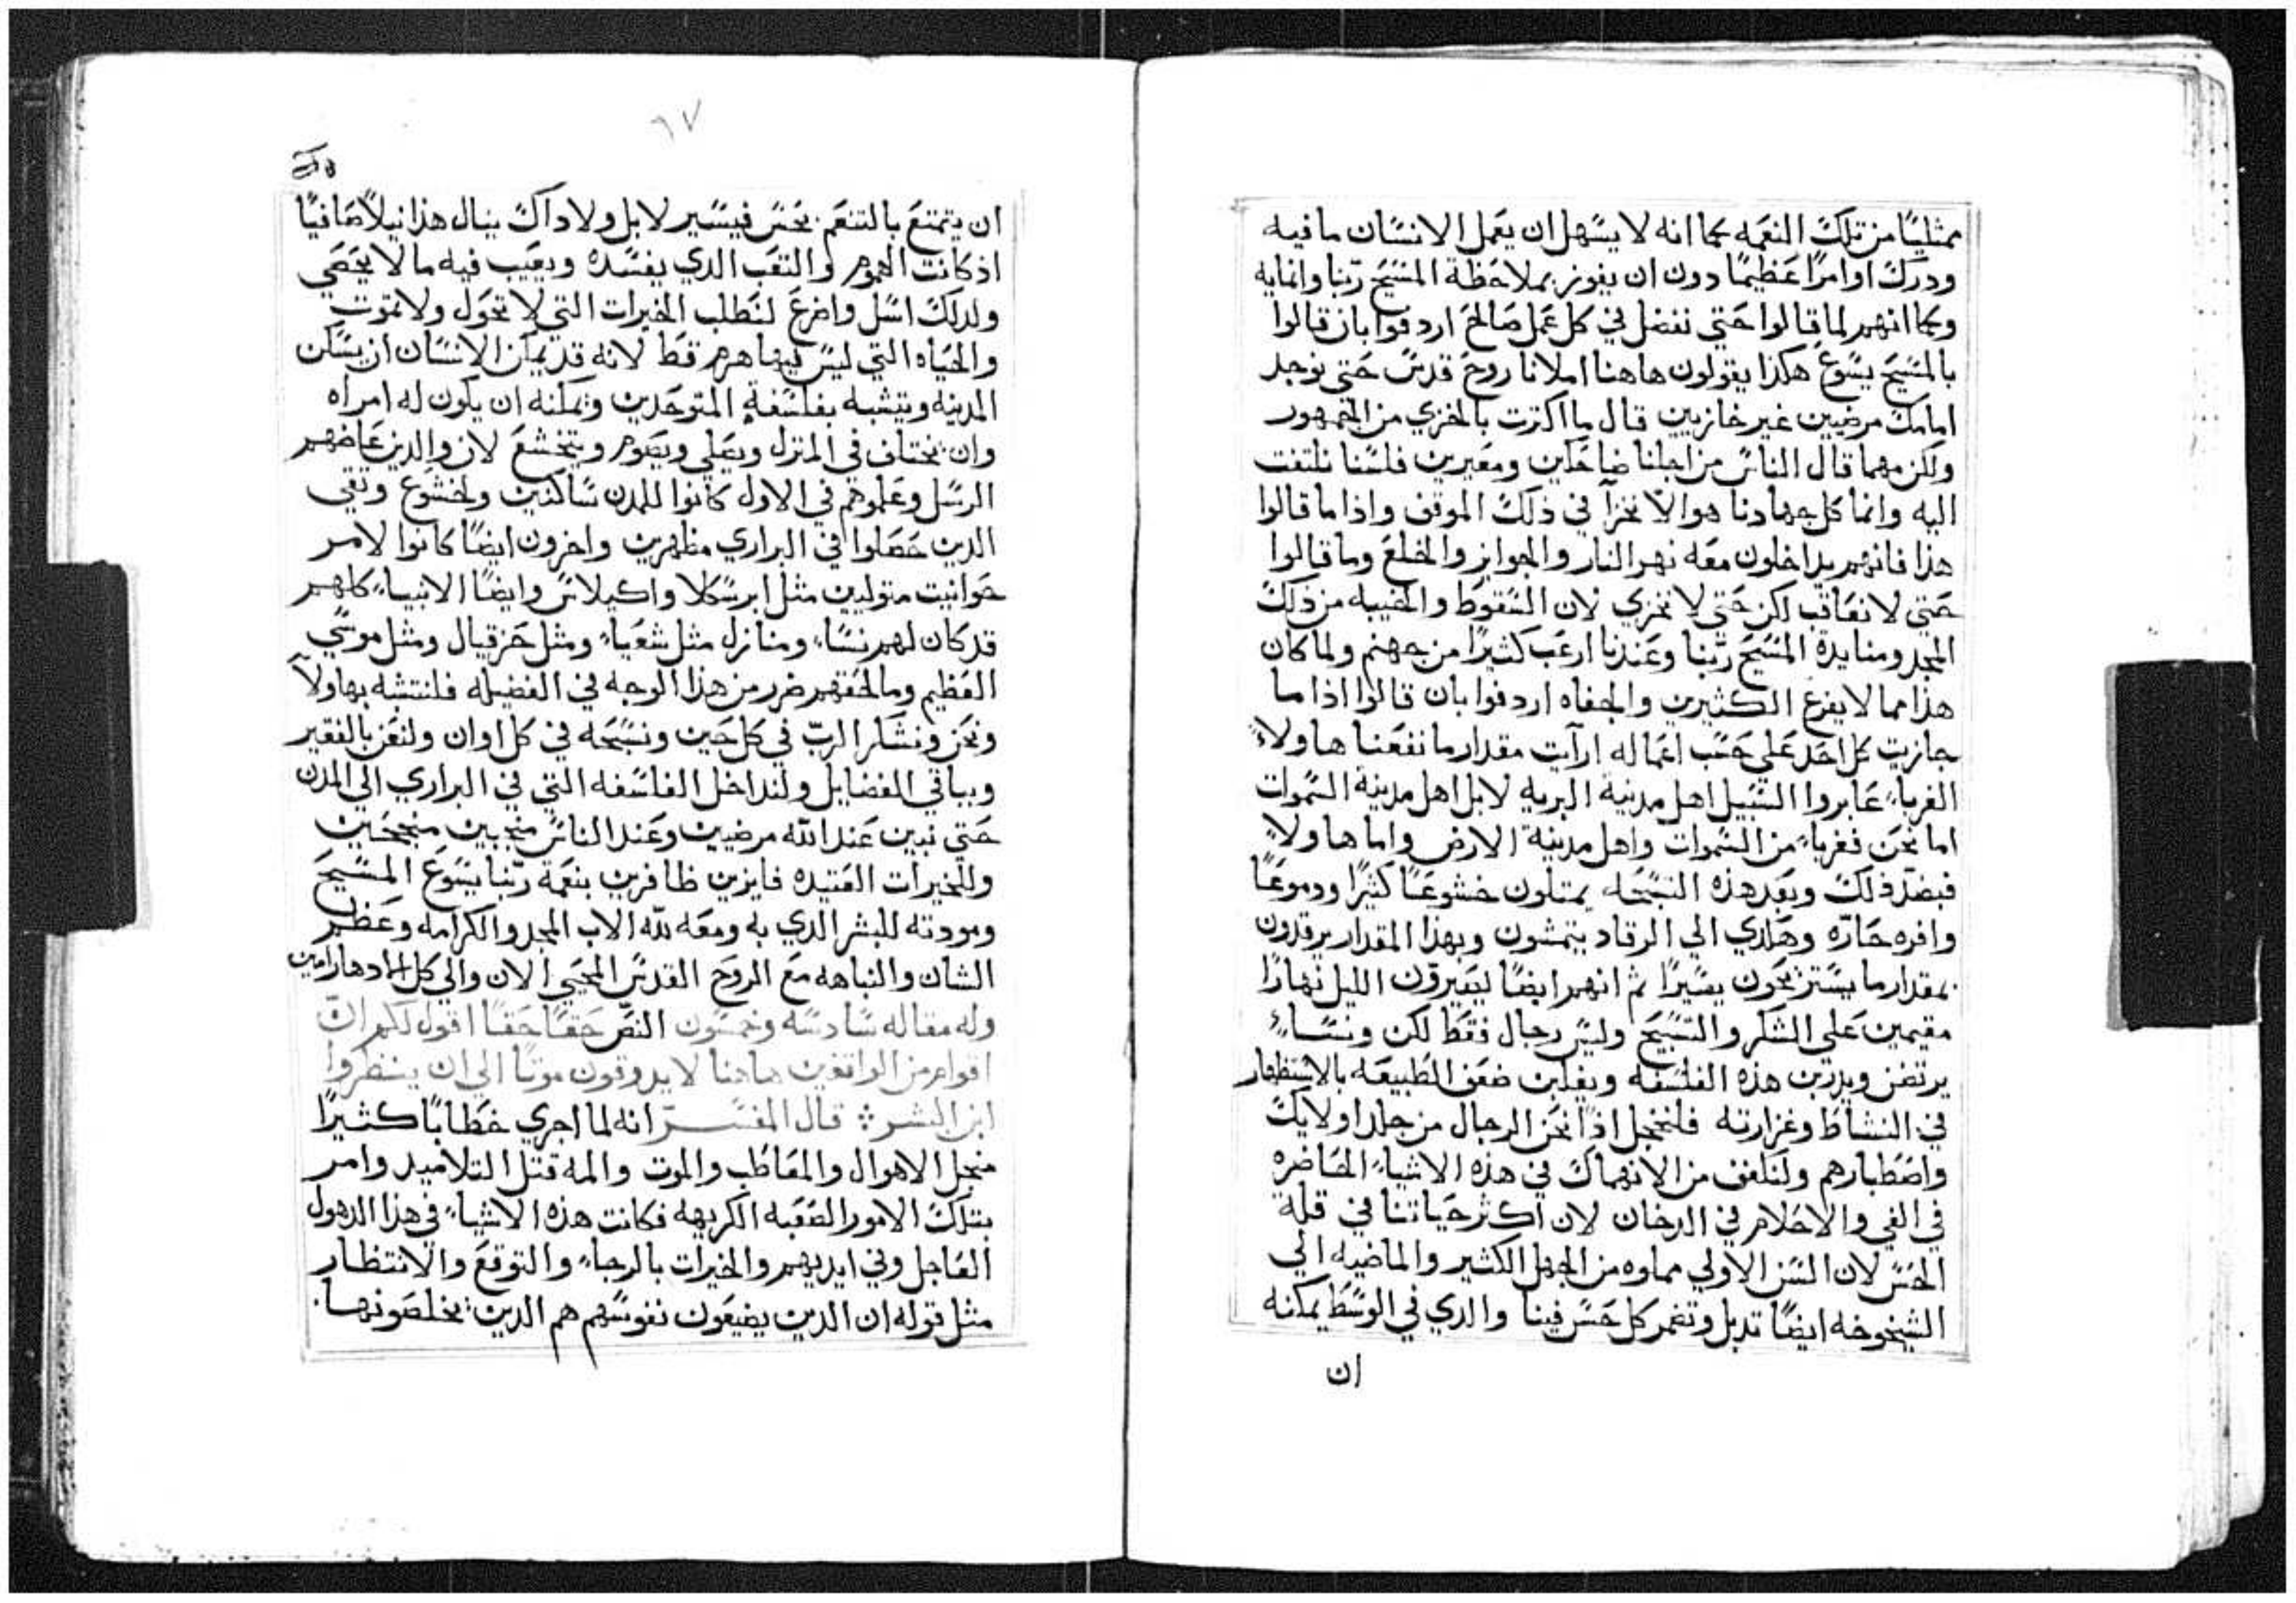 ممثليًا من تلك النعمه كما انه لا يسهل ان يعمل الانسان ما فيه
ودرك اوامرًا عظيمًا دون ان يفوز بملاحظة المسيح ربّنا وانمايه
وكما انهم لما قالوا حتي نفضل في كل عمل صالح اردفوا بان قالوا
بالمسيح يسوع هكذا يقولون هاهنا املانا روح قدس حتي نوجد
امامك مرضيين غير خازيين قال ما اكترت بالخزي من الجمهور
ولكن مهما قال الناس من اجلنا ضاحكين ومعيرين فلسنا نلتفت
اليه وانما كل جهادنا هو الّا نخزآ في ذلك الموقف واذا ما قالوا
هذا فانهم يداخلون معه نهر النار والجوايز والخلع وما قالوا
حتي لا نعاقب لكن حتي لا نخزي لان السقوط والخيبه من ذلك
المجد ومنايدة المسيح ربّنا وعندنا ارعب كثيرًا من جهنم ولما كان
هذا مما لا يفزع الكثيرين والجفاه اردفوا بان قالوا اذا ما
جازيت كل احد علي حسب اعماله ارآيت مقدار ما نفعنا هاولاء
الغرباء عابروا السبيل اهل مدينة البريه لا بل اهل مدينة السموات
اما نحن فغرباء من السموات واهل مدينة الارض واما هاولاء
فبضدّ ذلك وبعد هذه التسبحه يمتلون خشوعًا كثيرًا ودموعًا
وافره حارّه وهكدي الي الرقاد يتمشون وبهذا المقدار يرقدون
بمقدار ما يستريحون يسيرًا ثم انهم ايضًا ليصيروّن الليل نهارًا
مقيمين علي الشكر والتسبيح وليس رجال فقط لكن ونساء
يرتضن ويدرّبن هذه الفلسفه ويغلبن ضعف الطبيعه بالاستظهار
في النشاط وغزارته فلنخجل اذًا نحن الرجال من جلد اولايك
واصطبارهم ولنكفف من الانهماك في هذه الاشياء الحاضره
في الفي والاحلام في الدخان لان اكثر حياتنا في قلة
الحس لان السن الاولي مماوه من الجهل الكثير والماضيه الي
الشيخوخه ايضًا تدبل وتضمر كل حس فينا والدي في الوسط يمكنه
ان
٦٧
ان يتمتع بالتنعم بحس فيسير لا بل ولا داك ينال هذا نيلًا صافيًا
اذ كانت الهموم والتعب الدي يفسده ويعيب فيه ما لا يحصي
ولدلك اسل واضرع لنطلب الخيرات التي لا تحول ولا تموت
والحياه التي ليس فيها هرم قط لانه قد يمكن الانسان ان يسكن
المدينه ويتشبه بفلسفة المتوحدين ويمكنه ان يكون له امراه
وان يختاف في المنزل ويصلي ويصوم ويتخشع لان والدين عاضهم
الرسل وعلموهم في الاول كانوا للمدن ساكنين ولخشوع وتقي
الدين حصلوا في البراري مظهرين واخرون ايضًا كانوا لامر
حوانيت متوليين مثل ابرسكلا واكيلاس وايضًا الانبياء كلهم
قد كان لهم نساء ومنازل مثل شعياء ومثل حزقيال ومثل موسي
العظيم وما لحقهم ضرر من هذا الوجه في الفضيله فلنتشبه بهاولآ
ونحن ونشكر الربّ في كل حين ونسبحه في كل اوان ولنعن بالفقير
وبباقي الفضايل ولنداخل الفلسفه التي في البراري الي المدن
حتي نبين عند الله مرضيين وعند الناس منجبين منجحين
وللخيرات العتيده فايزين ظافرين بنعمة ربّنا يسوع المسيح
ومودته للبشر الدي به ومعه لله الاب المجد والكرامه وعظم
الشان والنباهه مع الروح القدس المحيي الان والي كل الادهار امين
وله مقاله سادسه وخمسون النصّ حقًا حقًا اقول لكم انّ
اقوام من الواقفين هاهنا لا يدوقون موتًا الي ان ينظروا
ابن البشر قال المفسّر انه لما اجري خطابًا كثيرًا
منجل الاهوال والمعاطب والموت والمه قتل التلاميد وامر
بتلك الامور الصعبه الكريهه فكانت هذه الاشياء في هذا الدهول
العاجل وفي ايديهم والخيرات بالرجاء والتوقع والانتظار
مثل قوله ان الدين يضيعون نفوسهم هم الدين يخلصونها